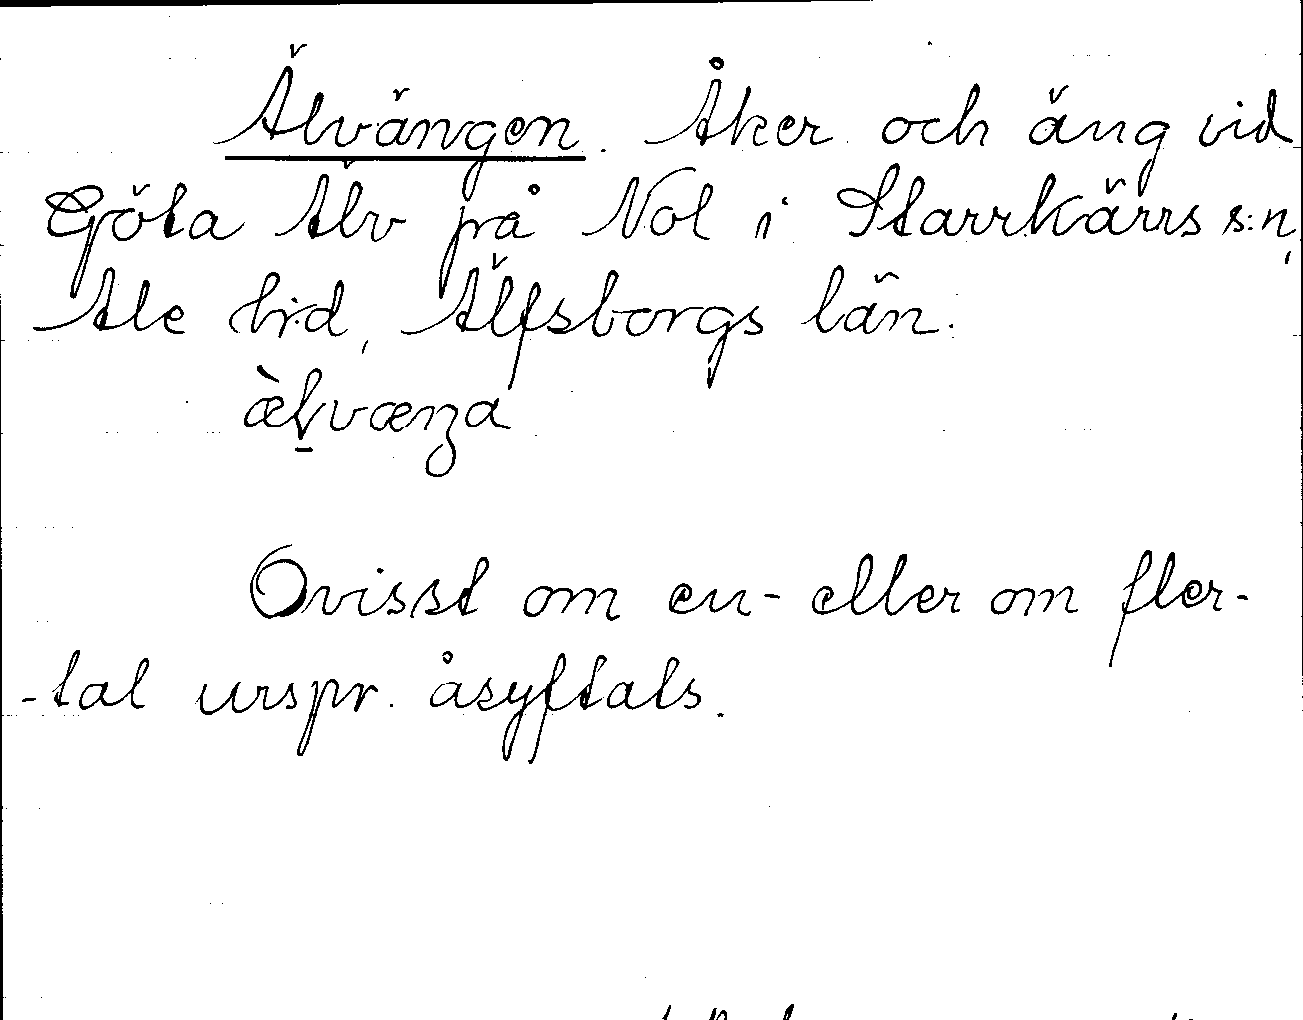 Älvängen. Åker och äng vid
Göta Älv på Nol i Starrkärrs s:n,
Ale h:d, Älfsborgs län.
æ̀ḷvæŋa
Ovisst om en- eller om fler-
-tal urspr. åsyftats.